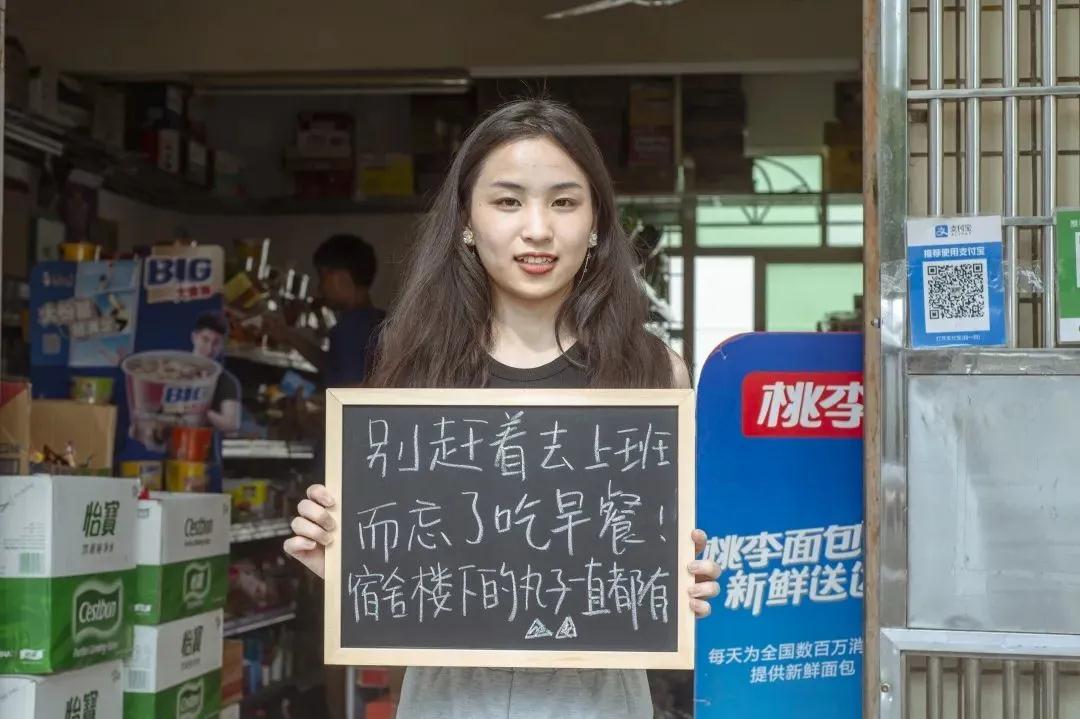 别赶着去上班
而忘了吃早餐！
宿舍楼下的丸子一直都有
BIG
BIG
怡寶
Cestbon
怡寶
Cestbon
怡寶
Cestbon
怡寶
桃李
桃李面包
新鲜送
每天为全国数百万消
提供新鲜面包
支付宝
ALIPAY
推荐使用支付宝